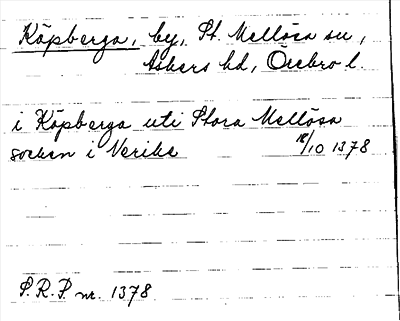 Köpberga, by, St. Mellösa sn,
Askers hd, Örebro l.
i Köpberga uti Stora Mellösa
socken i Nerike 18/10 1378
S.R.P. nr. 1378